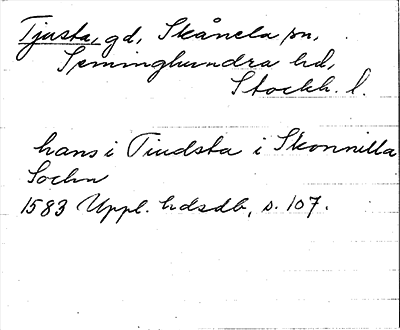 Tjusta, gd, Skånela sn,
Seminghundra hd,
Stockh. l.
hans i Tiudsta i Skonnilla
Sochn
1583 Uppl. hdsdb, s. 107.